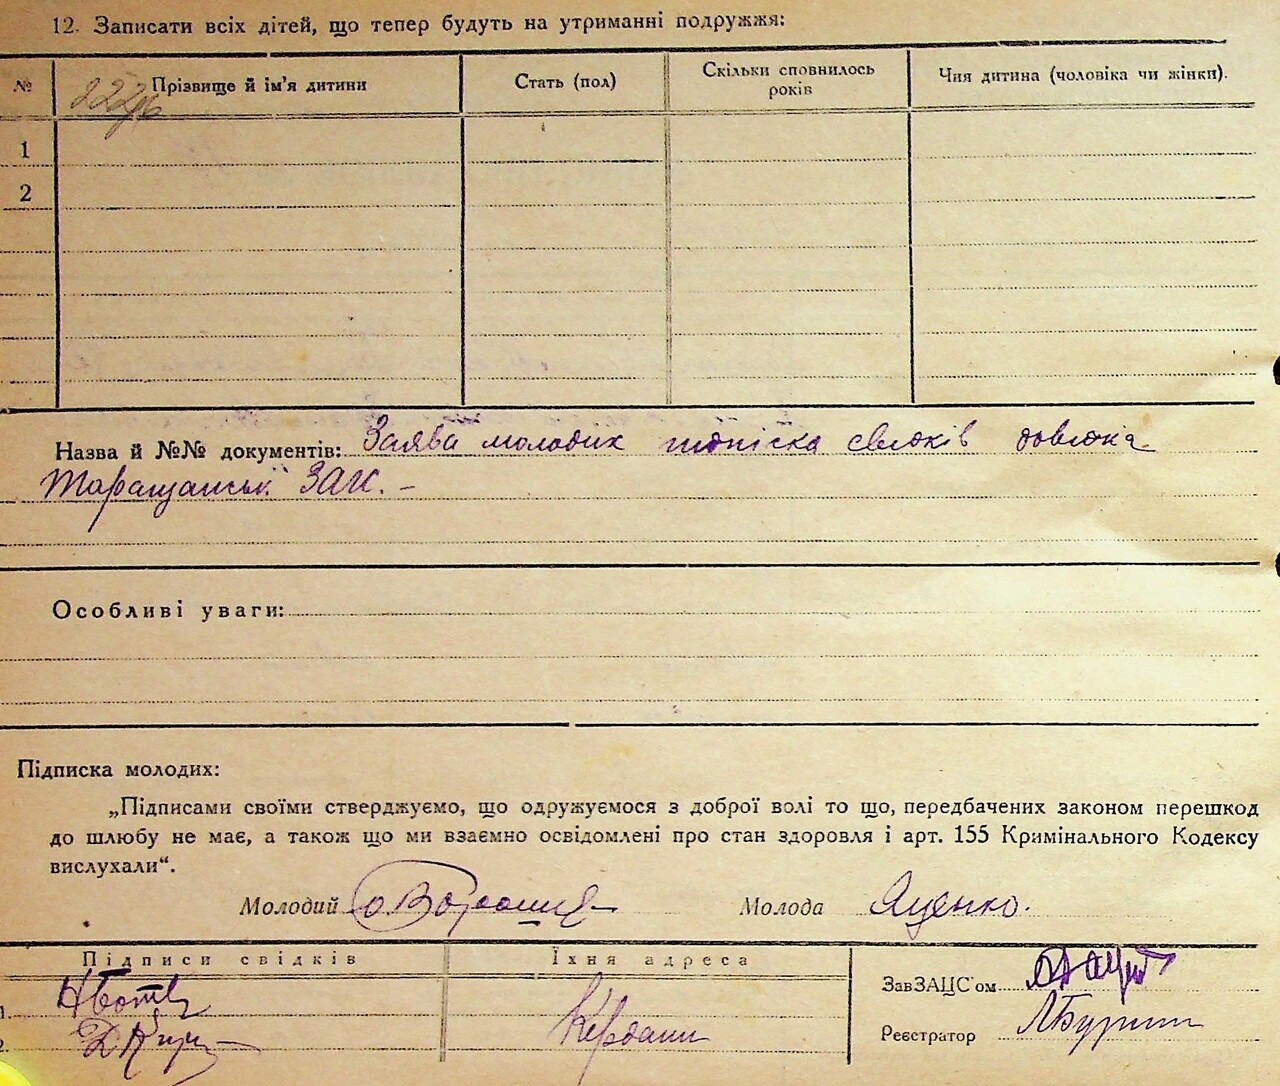 12. Записати всіх дітей, що тепер будуть на утриманні подружжя:
№ Прізвище й ім'я дитини Стать (пол) Скільки сповнилось років Чия дитина (чоловіка чи жінки).
1
2
Назва й №№ документів: Заява молодих
Таращанськ. ЗАГС. –
Особливі уваги:
Підписка молодих:
„Підписами своїми стверджуємо, що одружуємося з доброї волі то що, передбачених законом перешкод
до шлюбу не має, а також що ми взаємно освідомлені про стан здоровля і арт. 155 Кримінального Кодексу
вислухали“.
Молодий Молода Яценко.
Підписи свідків Їхня адреса
ЗавЗАЦС'ом
1.
Реєстратор
2. Кердани